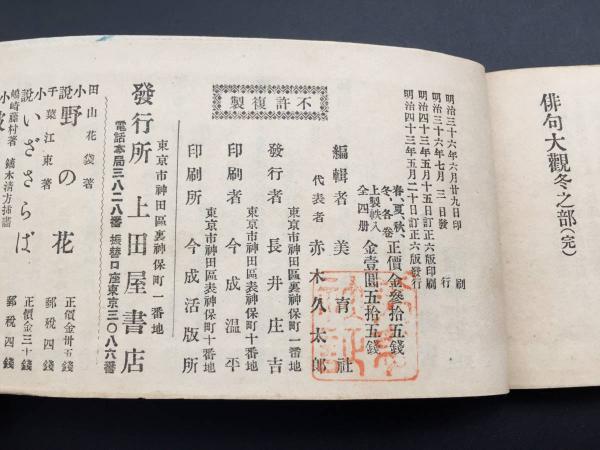 俳句大觀冬之部(完)
明治三十六年六月廿九日印刷
明治三十六年七月三日發行
明治四十三年五月十五日訂正六版印刷
明治四十三年五月二十日訂正六版發行
春、夏、秋、冬、各卷 正價金參拾五錢
上製帙入全四册 金壹圓五拾五錢
不許複製
編輯者 美育社
代表者 赤木久太郎
東京市神田區裏神保町一番地
發行者 長井庄吉
東京市神田區表神保町十番地
印刷者 今成温平
東京市神田區表神保町十番地
印刷所 今成活版所
東京市神田區裏神保町一番地
發行所 上田屋書店
電話本局三八二八番 振替口座東京三〇八六番
田山花袋著
小說 野の花 正價金卅五錢 郵稅四錢
千葉江東著
小說 いざさらば 正價金三十錢 郵稅四錢
嶋崎藤村著 鏑木清方挿畫
小